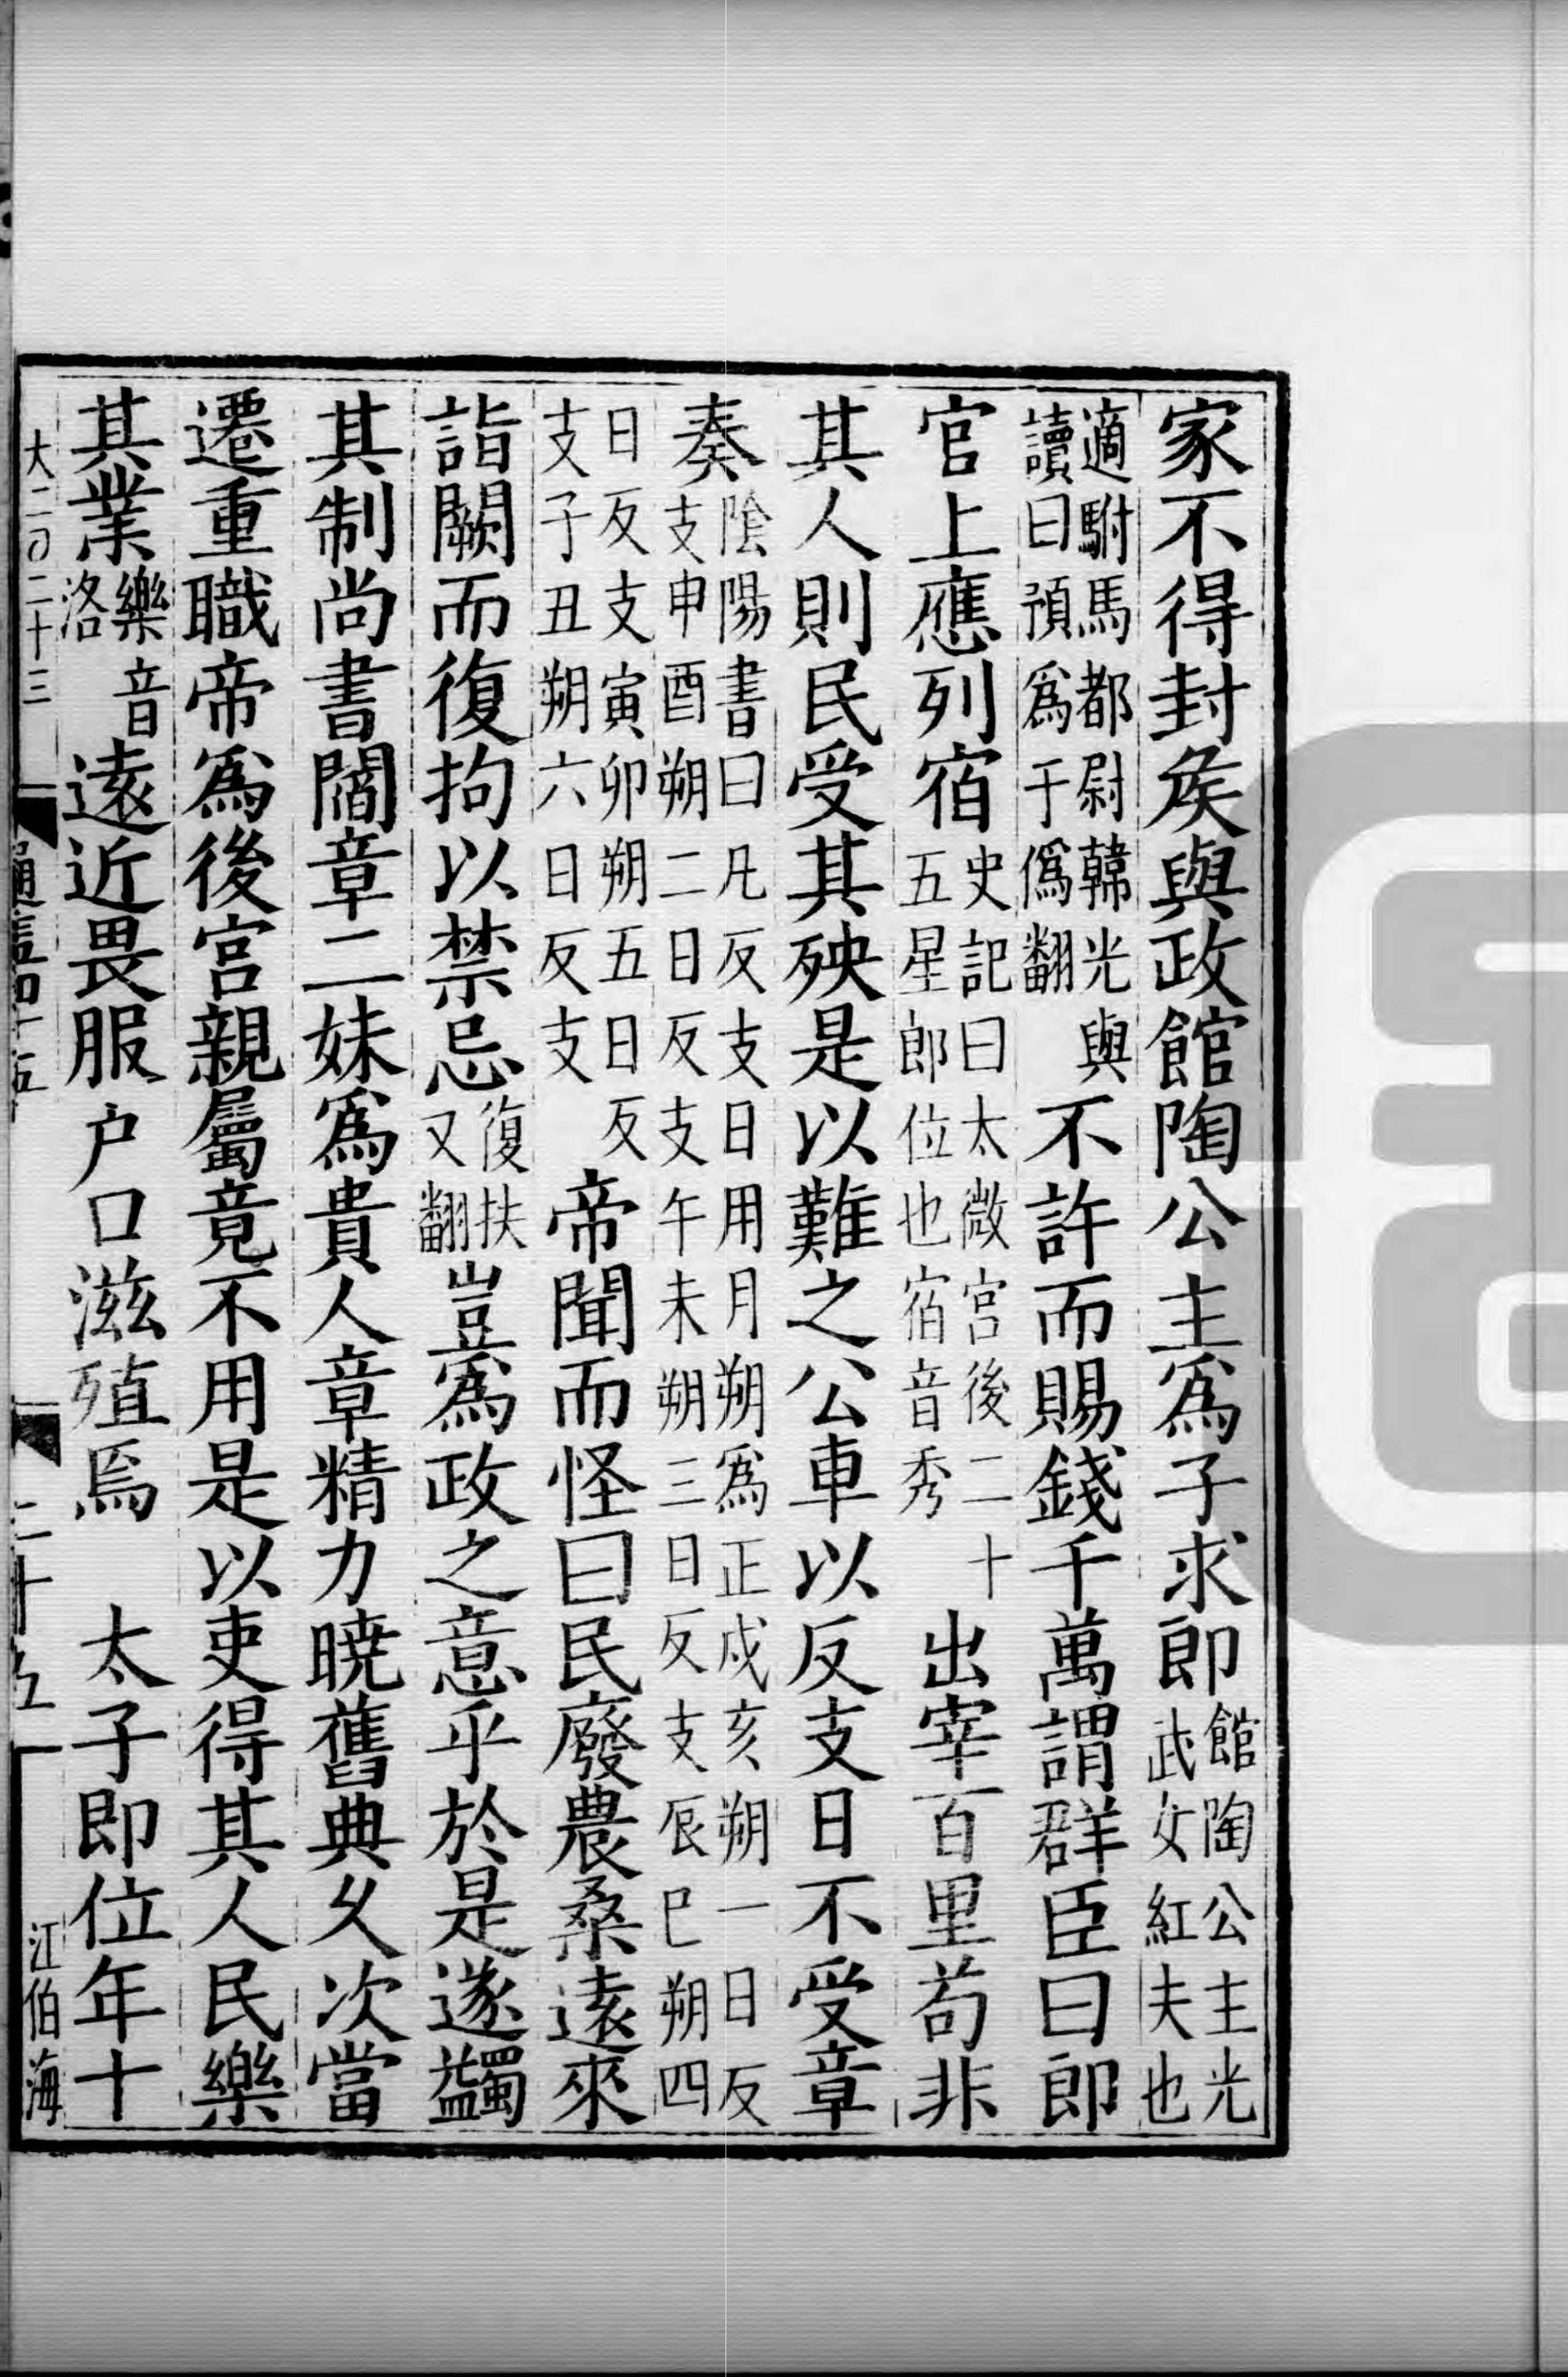 家不得封矦與政館陶公主爲子求郎館陶公主光武女紅夫也
適駙馬都尉韓光與讀曰預爲于僞翻不許而賜錢千萬謂群臣曰郎
官上應列宿史記曰太微宮後二十五星郎位也宿音秀出宰百里苟非
其人則民受其殃是以難之公車以反支日不受章
奏陰陽書曰凡反支日用月朔爲正戌亥朔一日反支申酉朔二日反支午未朔三日反支辰巳朔四
日反支寅卯朔五日反支子丑朔六日反支帝聞而怪曰民廢農桑遠來
詣闕而復拘以禁忌復扶又翻豈爲政之意乎於是遂蠲
其制尚書閻章二妹爲貴人章精力曉舊典乆次當
遷重職帝爲後宮親屬竟不用是以吏得其人民樂
其業樂音洛遠近畏服户口滋殖焉 太子即位年十
大二〇二十三
通鑑四十五
二十五
江伯海